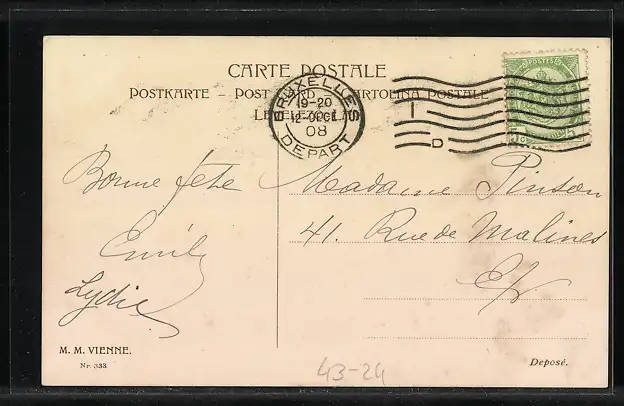 CARTE POSTALE
POSTKARTE – POST CARD – CARTOLINA POSTALE
BRUXELLES
19-20
12 OCT.
08
DEPART
POSTES
Bonne fête
Emily
Lydie
Madame Pinson
41. Rue de Malines
E/V
M. M. VIENNE.
Nr. 333
43-24
Deposé.